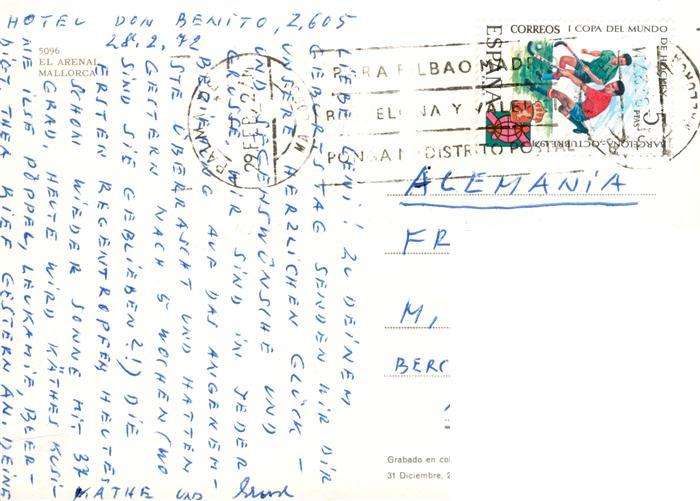 HOTEL DON BENITO, Z. 605
28.2.72
5096
EL ARENAL
MALLORCA
LIEBE LENI! ZU DEINEM
GEBURTSTAG SENDEN WIR DIR
UNSERE HERZLICHEN GLÜCK-
UND SEGENSWÜNSCHE UND
GRÜSSE. WIR SIND IN JEDER
BEZIEHUNG AUF DAS ANGENEHM-
STE ÜBERRASCHT UND HATTEN
GESTERN NACH 5 WOCHEN (WO
SIND SIE GEBLIEBEN?!) DIE
ERSTEN REGENTROPFEN, HEUTE
SCHON WIEDER SONNE MIT 37
GRAD, HEUTE WIRD KÄTHES KUSI-
NE ILSE PÖPPEL, LEUKÄMIE, BEER-
DIGT, THEA RIEF GESTERN AN. DEINE
KÄTHE UND
CORREOS I COPA DEL MUNDO
DE HOCKEY
ESPAÑA
5 PTAS
BARCELONA-OCTUBRE 1971
PARA BILBAO MADRID
BARCELONA Y VALENCIA
PONGA Nº DISTRITO POSTAL
29 FEB 72
ALEMANIA
FR
M,
BERC
Grabado en col
31 Diciembre,